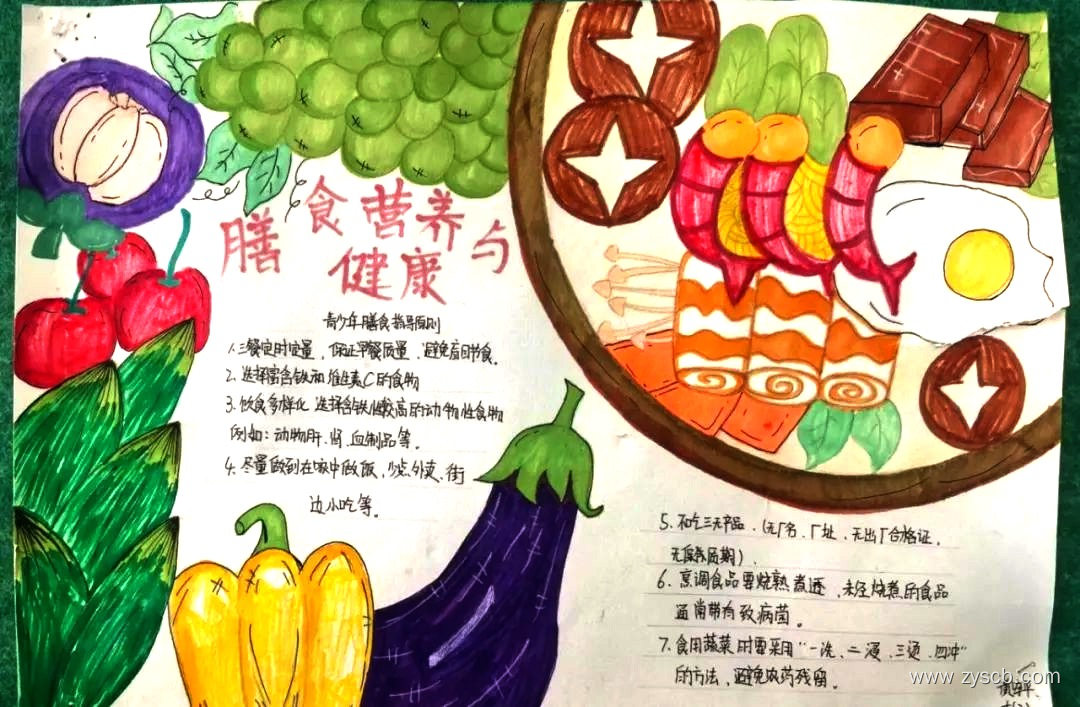 膳食营养与
健康
青少年膳食指导原则
1.三餐定时定量，保证早餐质量，避免盲目节食。
2.选择富含铁和维生素C的食物
3.饮食多样化 选择含铁性较高的动物性食物
例如：动物肝、肾、血制品等。
4.尽量做到在家中做饭，少点外卖、街
边小吃等。
5.不吃三无产品.（无厂名、厂址、无出厂合格证，
无保养质期）
6.烹调食品要烧熟煮透，未经烧煮的食品
通常带有致病菌。
7.食用蔬菜时要采用“一洗、二浸、三烫、四冲”
的方法，避免农药残留。
www.zyscb.com